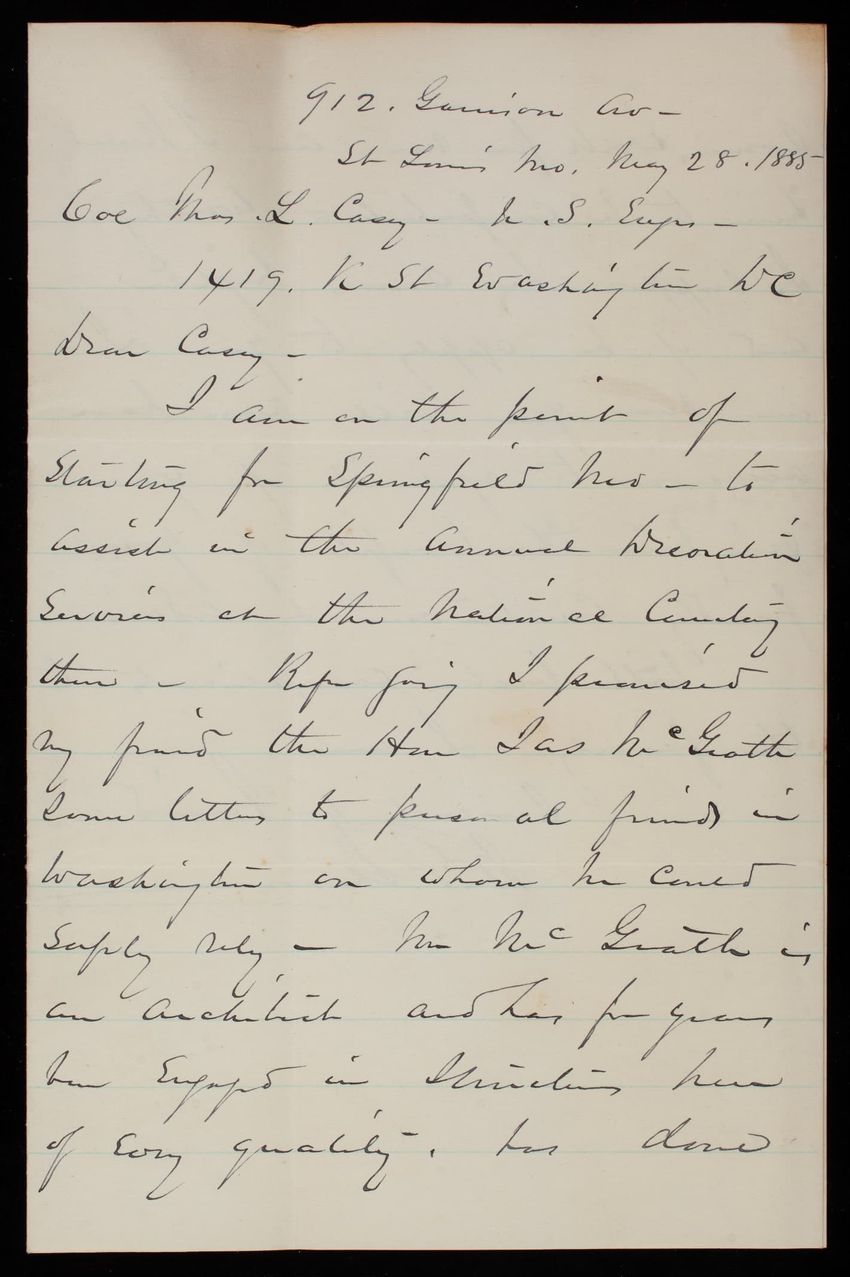 912. Garrison Av -
St Louis Mo. May 28. 1885
Col Thos. L. Casey - U.S. Engrs -
1419. K St Washington DC
Dear Casey -
I am on the point of
starting for Springfield Mo - to
assist in the annual Decoration
Services at the National Cemetery
there - Before going I promised
my friend the Hon Jas McGrath
some letters to personal friends in
Washington on whom he could
safely rely - Mr McGrath is
an architect and has for years
been engaged in structures here
of every quality. has done